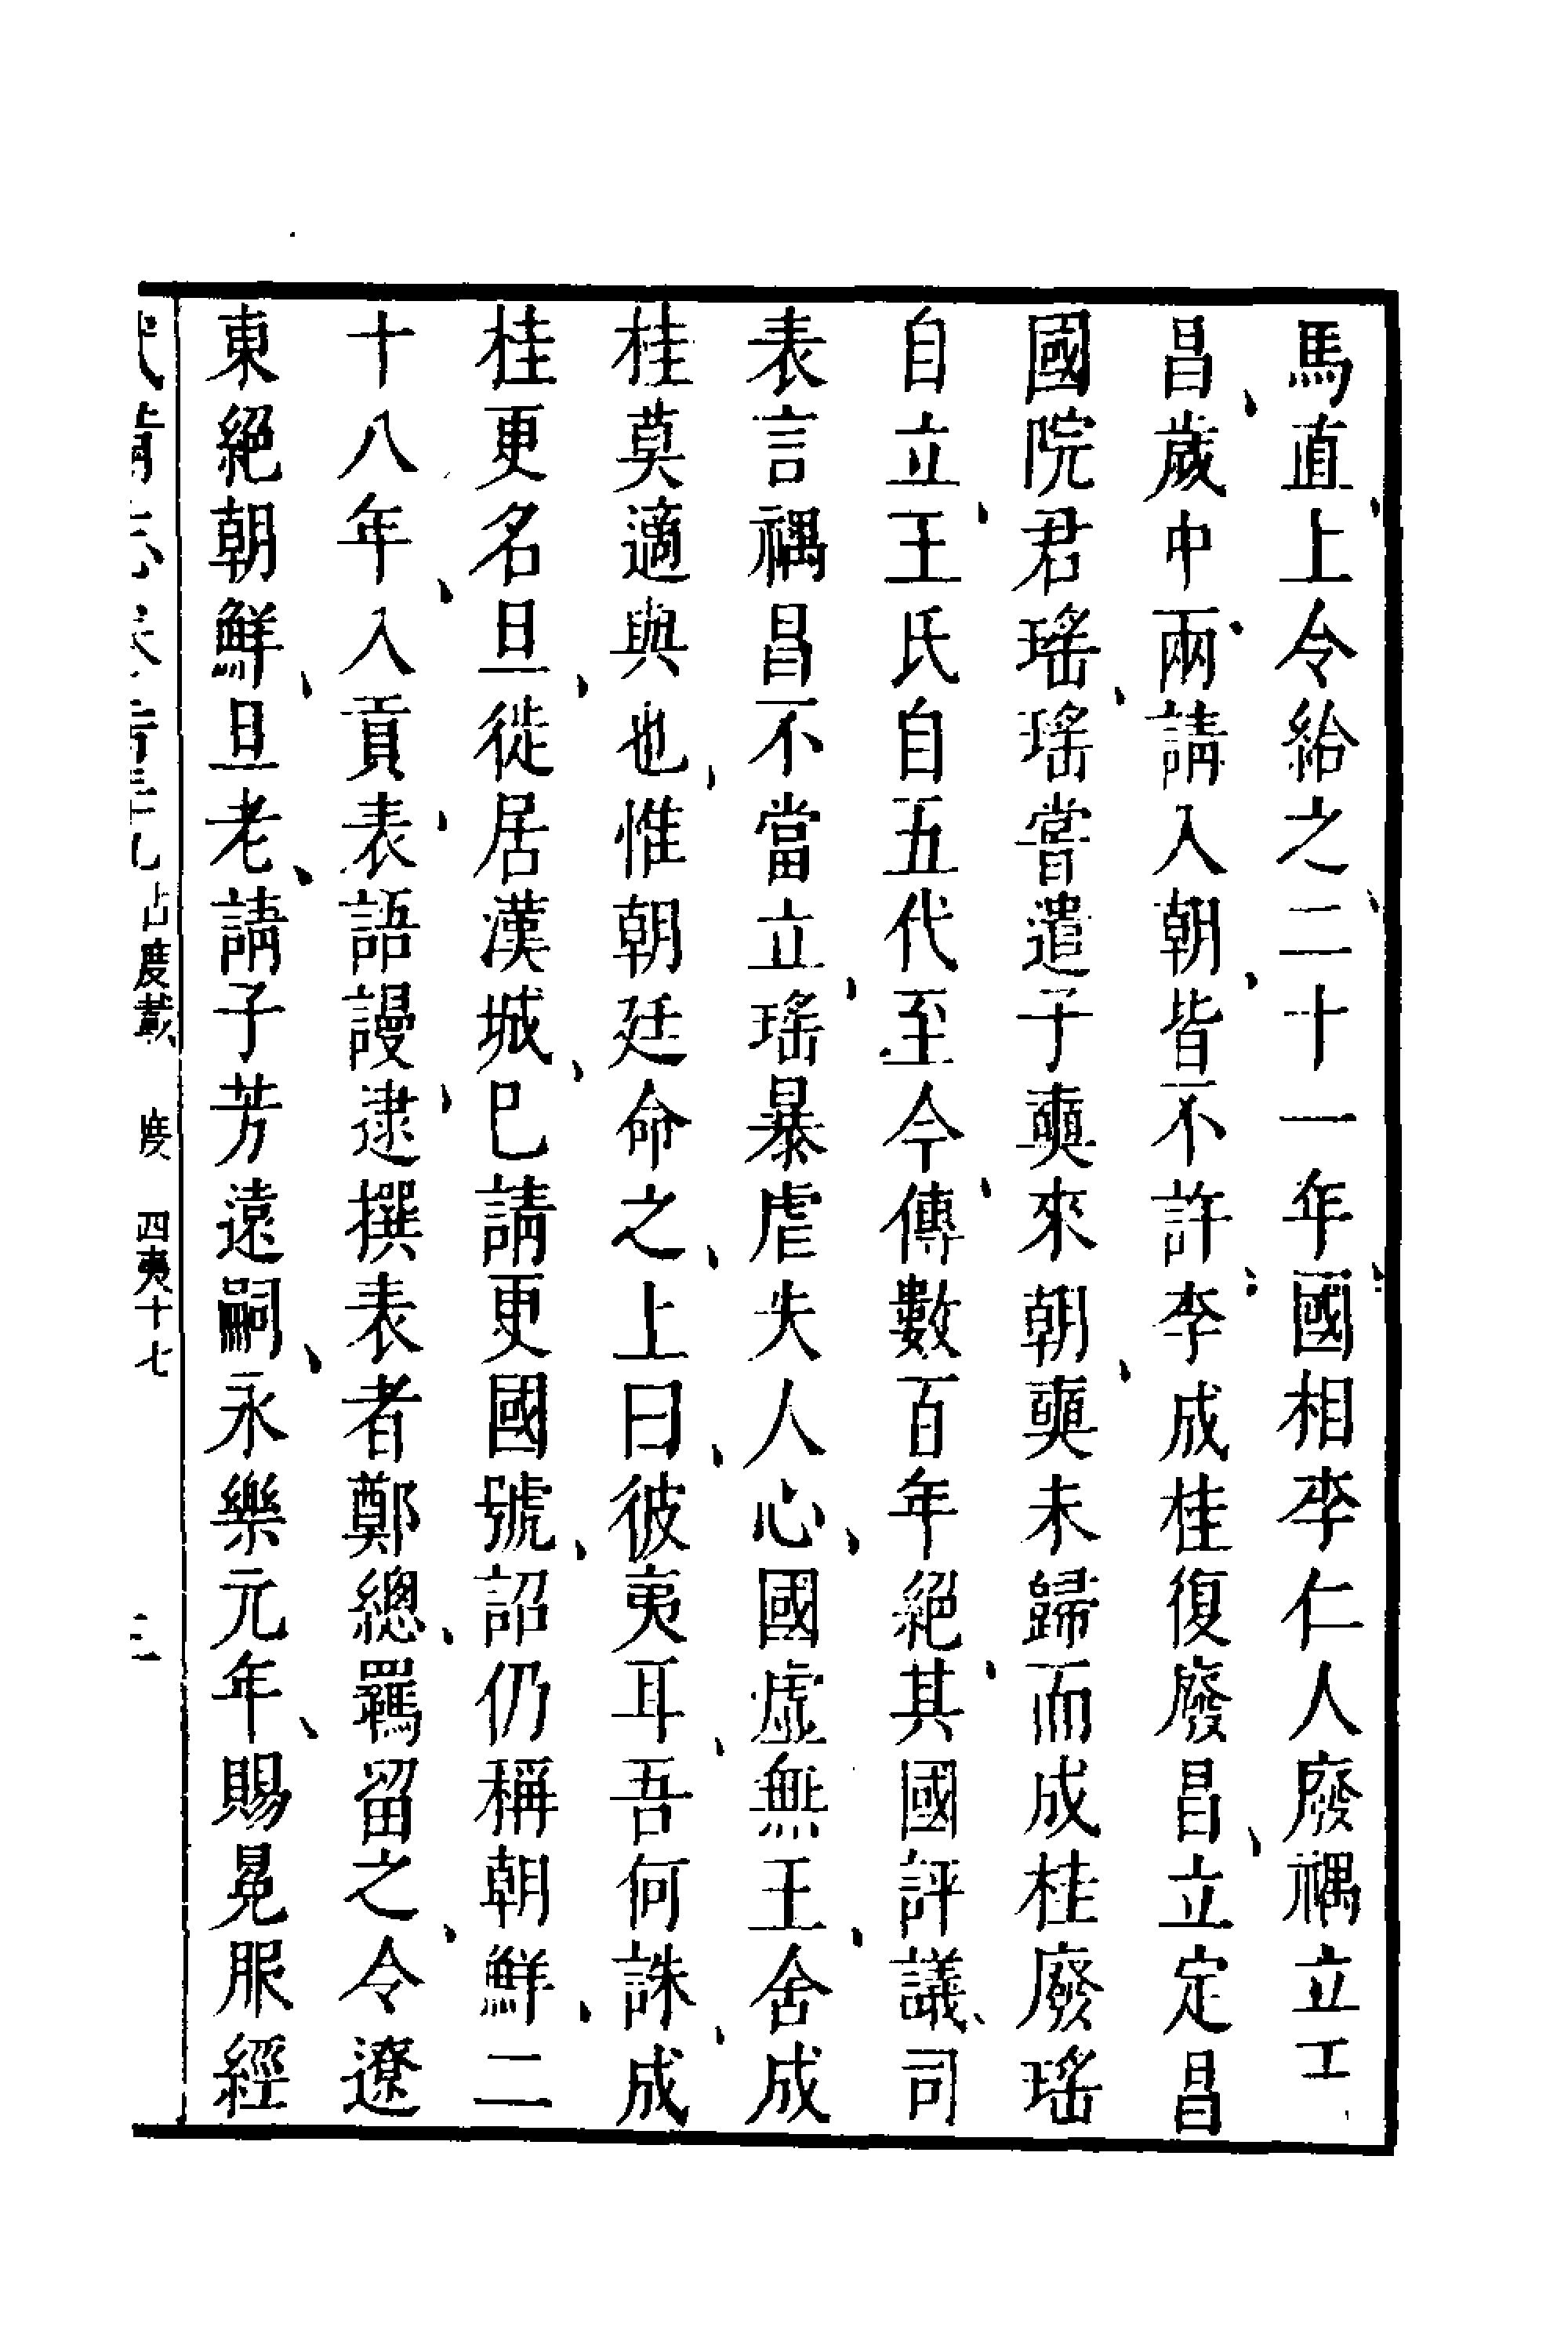 馬直上令給之二十一年國相李仁人廢禑立王
昌歲中兩請入朝皆不許李成桂復廢昌立定昌
國院君瑤瑤嘗遣子奭來朝奭未歸而成桂廢瑤
自立王氏自五代至今傳數百年絕其國評議司
表言禑昌不當立瑤暴虐失人心國虛無王舍成
桂莫適與也惟朝廷命之上曰彼夷耳吾何誅成
桂更名旦徙居漢城已請更國號詔仍稱朝鮮二
十八年入貢表語謾逮撰表者鄭總羈留之令遼
東絕朝鮮旦老請子芳遠嗣永樂元年賜冕服經
占度載 度 四夷十七